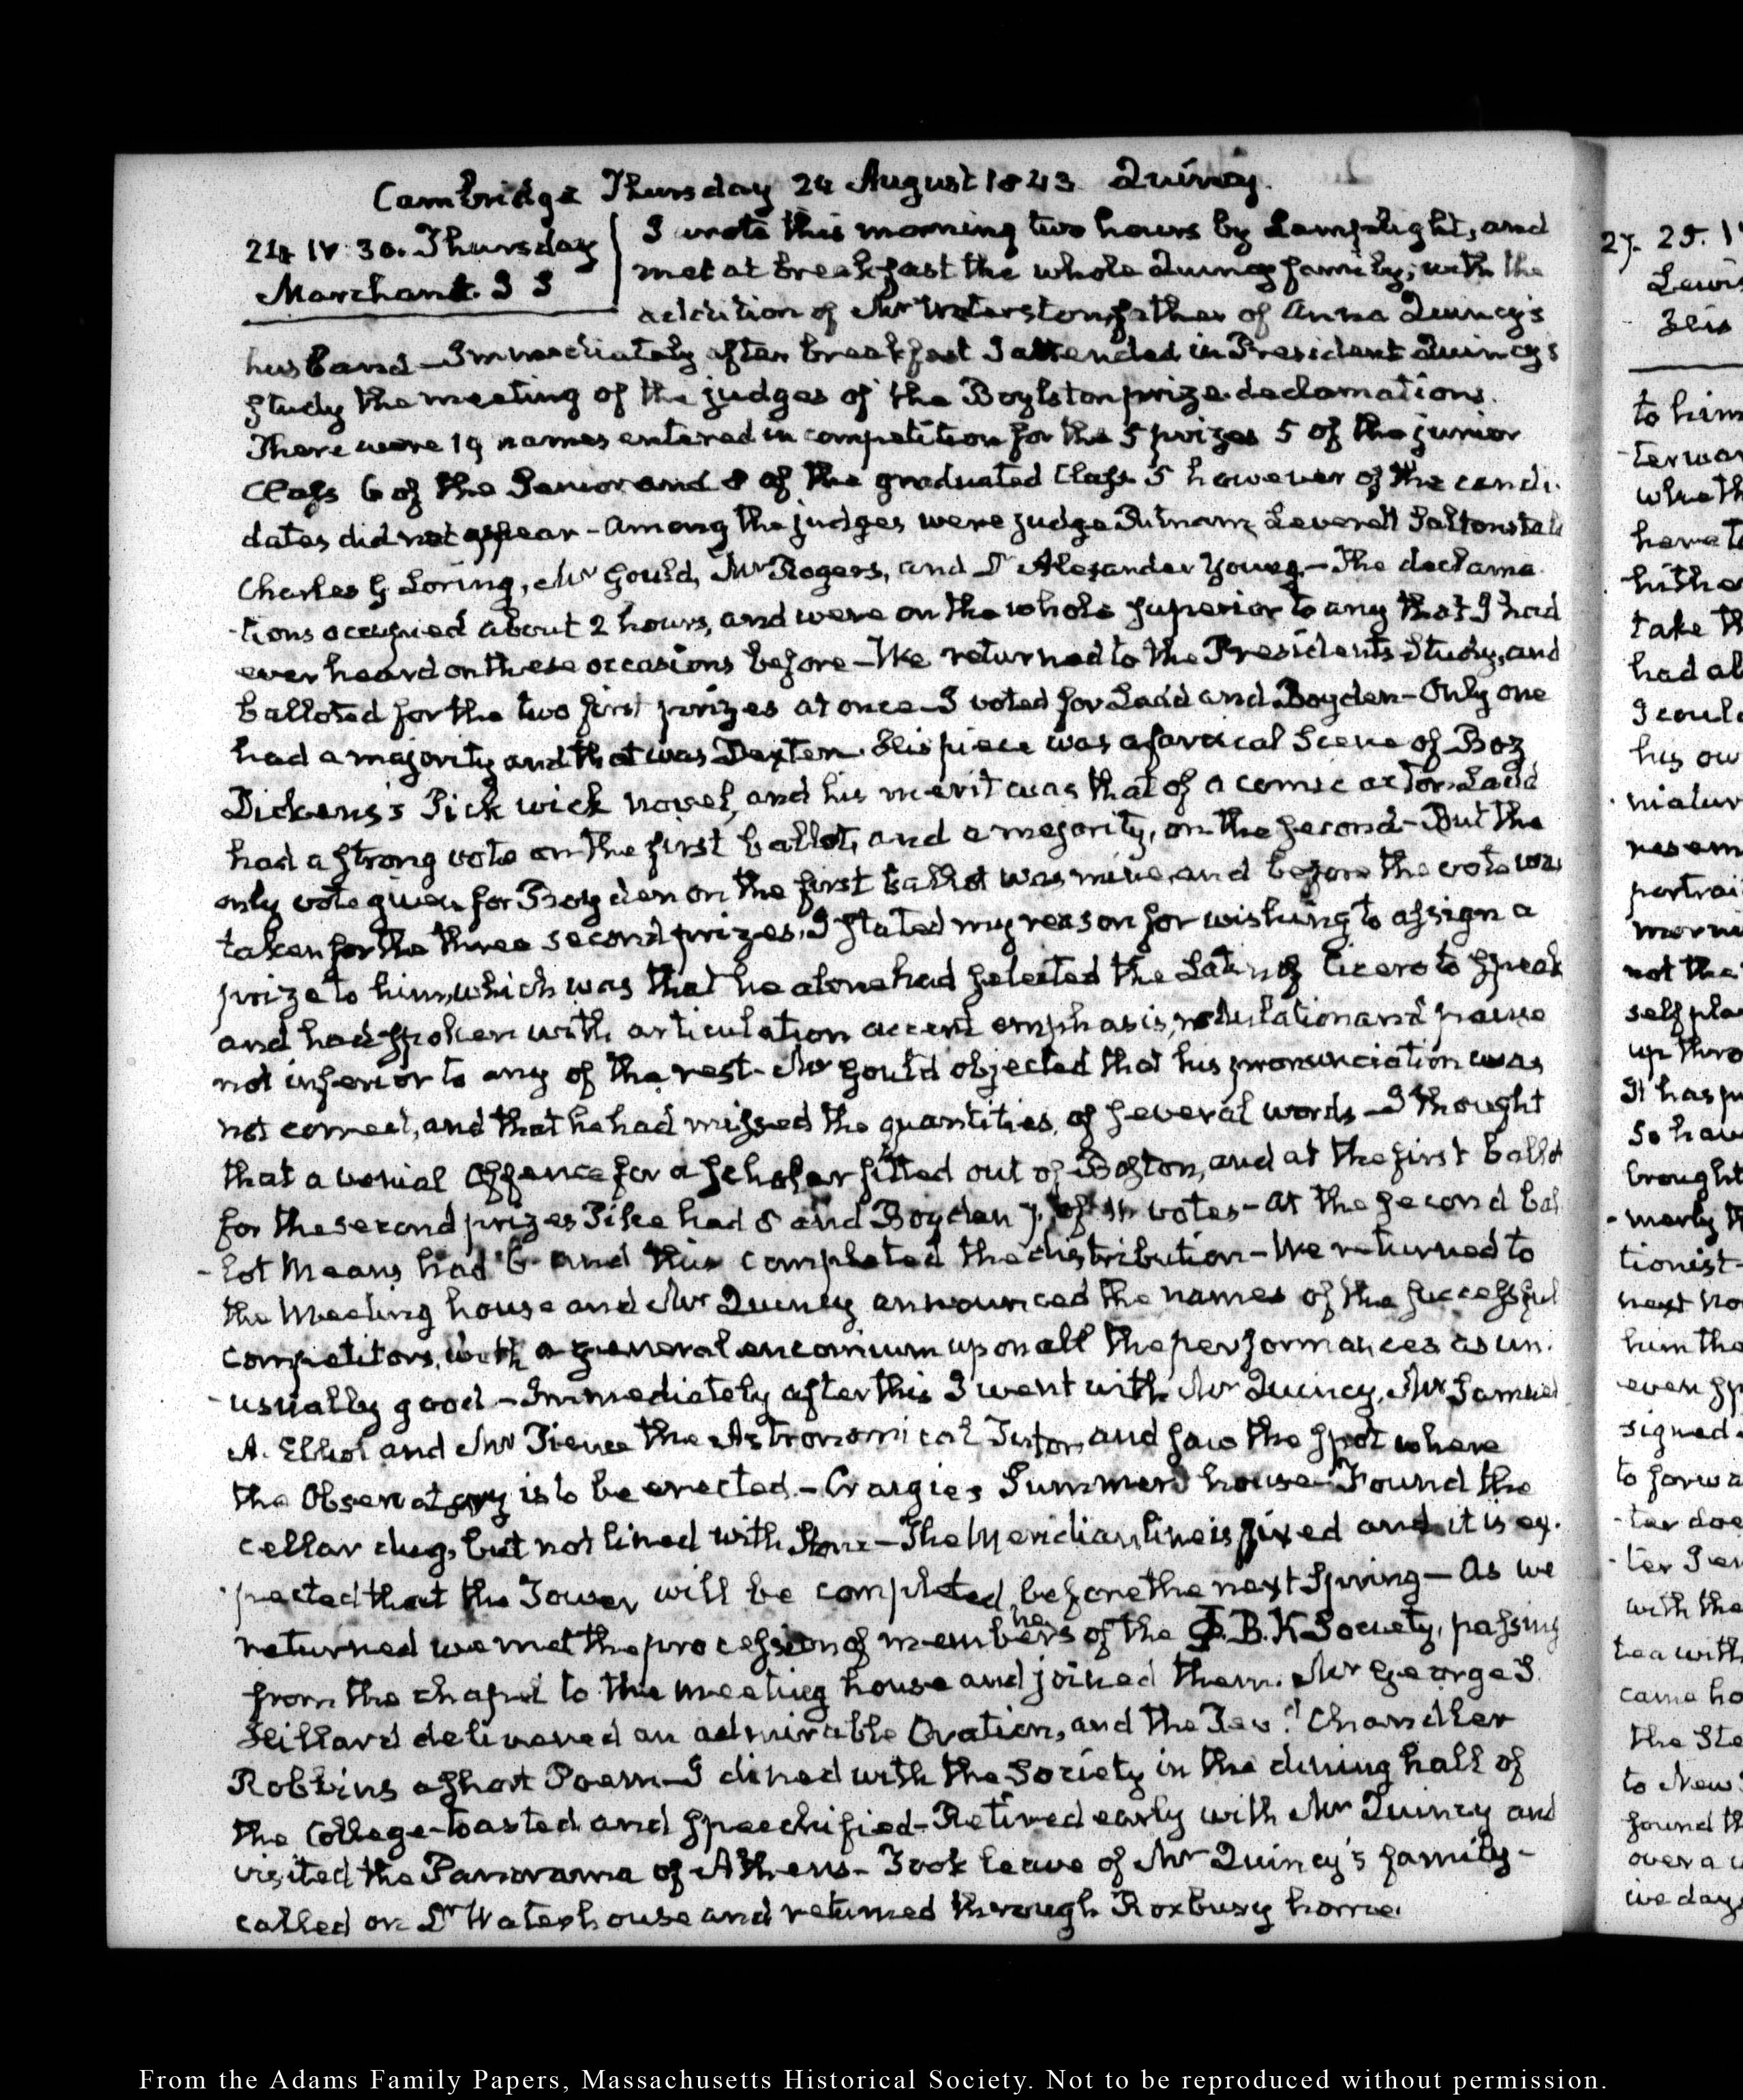 Cambridge Thursday 24 August 1843. Quincy.
24 IV. 30. Thursday
Marchant. S S
I wrote this morning two hours by Lamplight, and
met at breakfast the whole Quincy family; with the
addition of Mr Waterston, father of Anna Quincy's
husband — Immediately after breakfast I attended in President Quincy's
study the meeting of the judges of the Boylston prize declamations.
There were 19 names entered in competition for the 5 prizes 5 of the junior
Class 6 of the Senior and 8 of the graduated Class. 5 however of the candi-
dates did not appear - Among the judges were judge Putnam, Leverett Saltonstall
Charles G. Loring, Mr Gould, Mr Rogers, and Dr Alexander Young. — The declama-
-tions occupied about 2 hours, and were on the whole superior to any that I had
ever heard on these occasions before — We returned to the Presidents Study, and
balloted for the two first prizes at once — I voted for Ladd and Boyden — Only one
had a majority and that was Dexter. His piece was a farcical Scene of Boz
Dickens's Pickwick novel, and his merit was that of a comic actor. Ladd
had a strong vote on the first ballot, and a majority, on the second — But the
only vote given for Boyden on the first ballot was mine, and before the vote was
taken for the three second prizes, I stated my reason for wishing to assign a
prize to him, which was that he alone had selected the Latin of Cicero to speak
and had spoken with articulation accent emphasis, modulation and pause
not inferior to any of the rest - Mr Gould objected that his pronunciation was
not correct, and that he had missed the quantities, of several words — I thought
that a venial offence for a scholar fitted out of Boston, and at the first ballot
for the second prizes Pike had 8 and Boyden 7. of votes — at the second bal
-lot Means had 6 and this completed the distribution — We returned to
the Meeting house and Mr Quincy announced the names of the successful
competitors, with a general encomium upon all the performances as un-
-usually good — Immediately after this I went with Mr Quincy, Mr Samuel
A. Elliot and Mr Pierce the Astronomical Tutor, and saw the spot where
the Observatory is to be erected. — Craigie's Summer house — Found the
cellar dug, but not lined with Stone — The Meridian line is fixed and it is ex-
-pected that the Tower will be completed before the next Spring — As we
returned we met the procession of members of the Φ.B.K Society, passing
from the chapel to the meeting house and joined them. Mr George S.
Hillard delivered an admirable Oration, and the Revd Chandler
Robbins a short Poem — I dined with the Society in the dining hall of
the College — toasted and speechified — Retired early with Mr Quincy and
visited the Panorama of Athens — Took leave of Mr Quincy's family —
called on Dr Waterhouse and returned through Roxbury home.
27. 25.
Lewis
Elis
to him
-ter war
wheth
have to
hithe
take th
had al
I could
his ow
niatur
resem
portrai
morni
not the
self pla
up thro
It has pu
So hav
brought
-merly th
tionist-
next No
him tha
even sp
signed
to forwa
-ter doe
with the
tea with
came ho
the Sta
to New
found th
over a
ive days
From the Adams Family Papers, Massachusetts Historical Society. Not to be reproduced without permission.